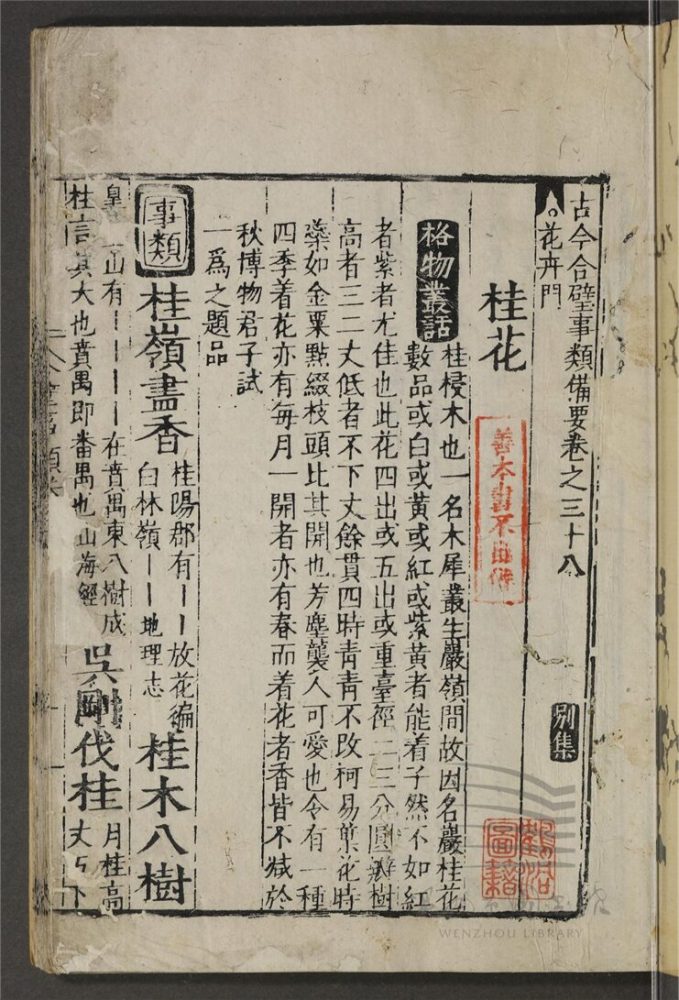 古今合璧事類備要卷之三十八 別集
花卉門
桂花
格物叢話 桂梫木也一名木犀叢生巖嶺間故因名巖桂花
數品或白或黃或紅或紫黃者能着子然不如紅
者紫者尤佳也此花四出或五出或重臺徑二三分圓瓣樹
高者三二丈低者不下丈餘貫四時青青不改柯易葉花時
蘂如金粟點綴枝頭比其開也芳塵襲人可愛也今有一種
四季着花亦有每月一開者亦有春而着花者香皆不減於
秋博物君子試
一爲之題品
事類 桂嶺盡香 桂陽郡有丨丨放花徧
白林嶺丨丨地理志
桂木八樹
皇 山有丨丨丨丨在賁禺東八樹成
桂言其大也賁禺即番禺也山海經
吳剛伐桂
月桂高
丈
下
善本書不出借
圖籍
WENZHOU LIBRARY